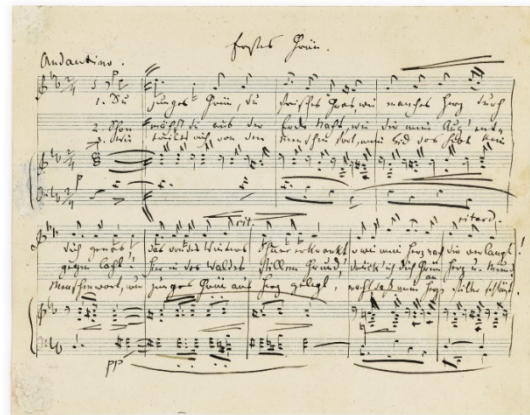 Erstes Grün.
Andantino.
1. Du junges Grün, du frisches Gras, wie manches Herz durch
2. Schon wächst du aus der Erde Nacht, wie dir mein Aug' ent-
3. Wie treibt's mich von den Menschen fort, mein Leid das hebt kein
p
rit. ritard.
dich genas, das von des Winters Schnee erkrankt o wie mein Herz nach dir verlangt!
gegen lacht! Hier in des Waldes stillem Grund, drück' ich dich Grün an Herz u. Mund
Menschenwort, nur junges Grün ans Herz gelegt, macht, daß mein Herz stiller schlägt.
pp